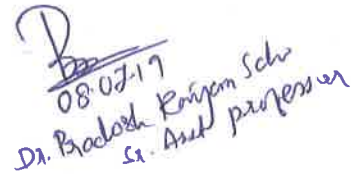 08.07.19
Dr. Pradosh Ranjan Sahu
Sr. Asst professor